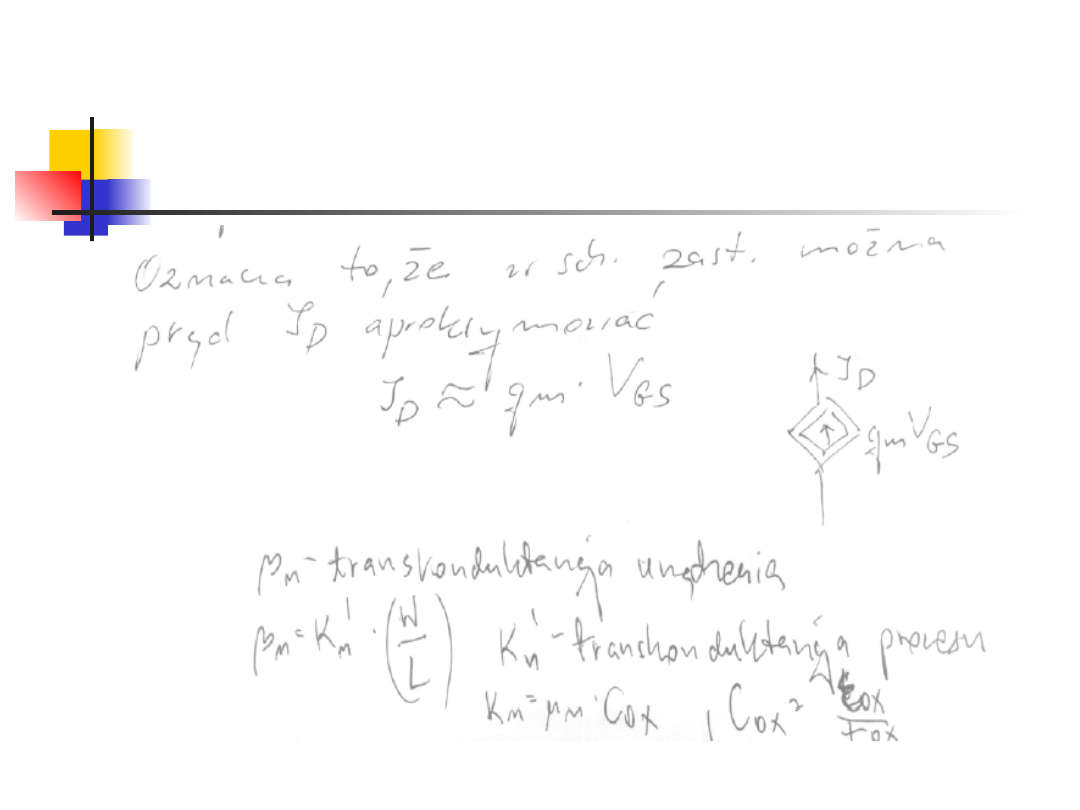 Oznacza to, że w sch. zast. można
prąd I_D aproksymować
I_D ≈ gm · V_GS
I_D
gm V_GS
β_n - transkonduktancja urządzenia
β_n = K_n' · (W/L) K_n' - transkonduktancja procesu
K_n = μ_n · C_ox , C_ox = ε_ox/t_ox